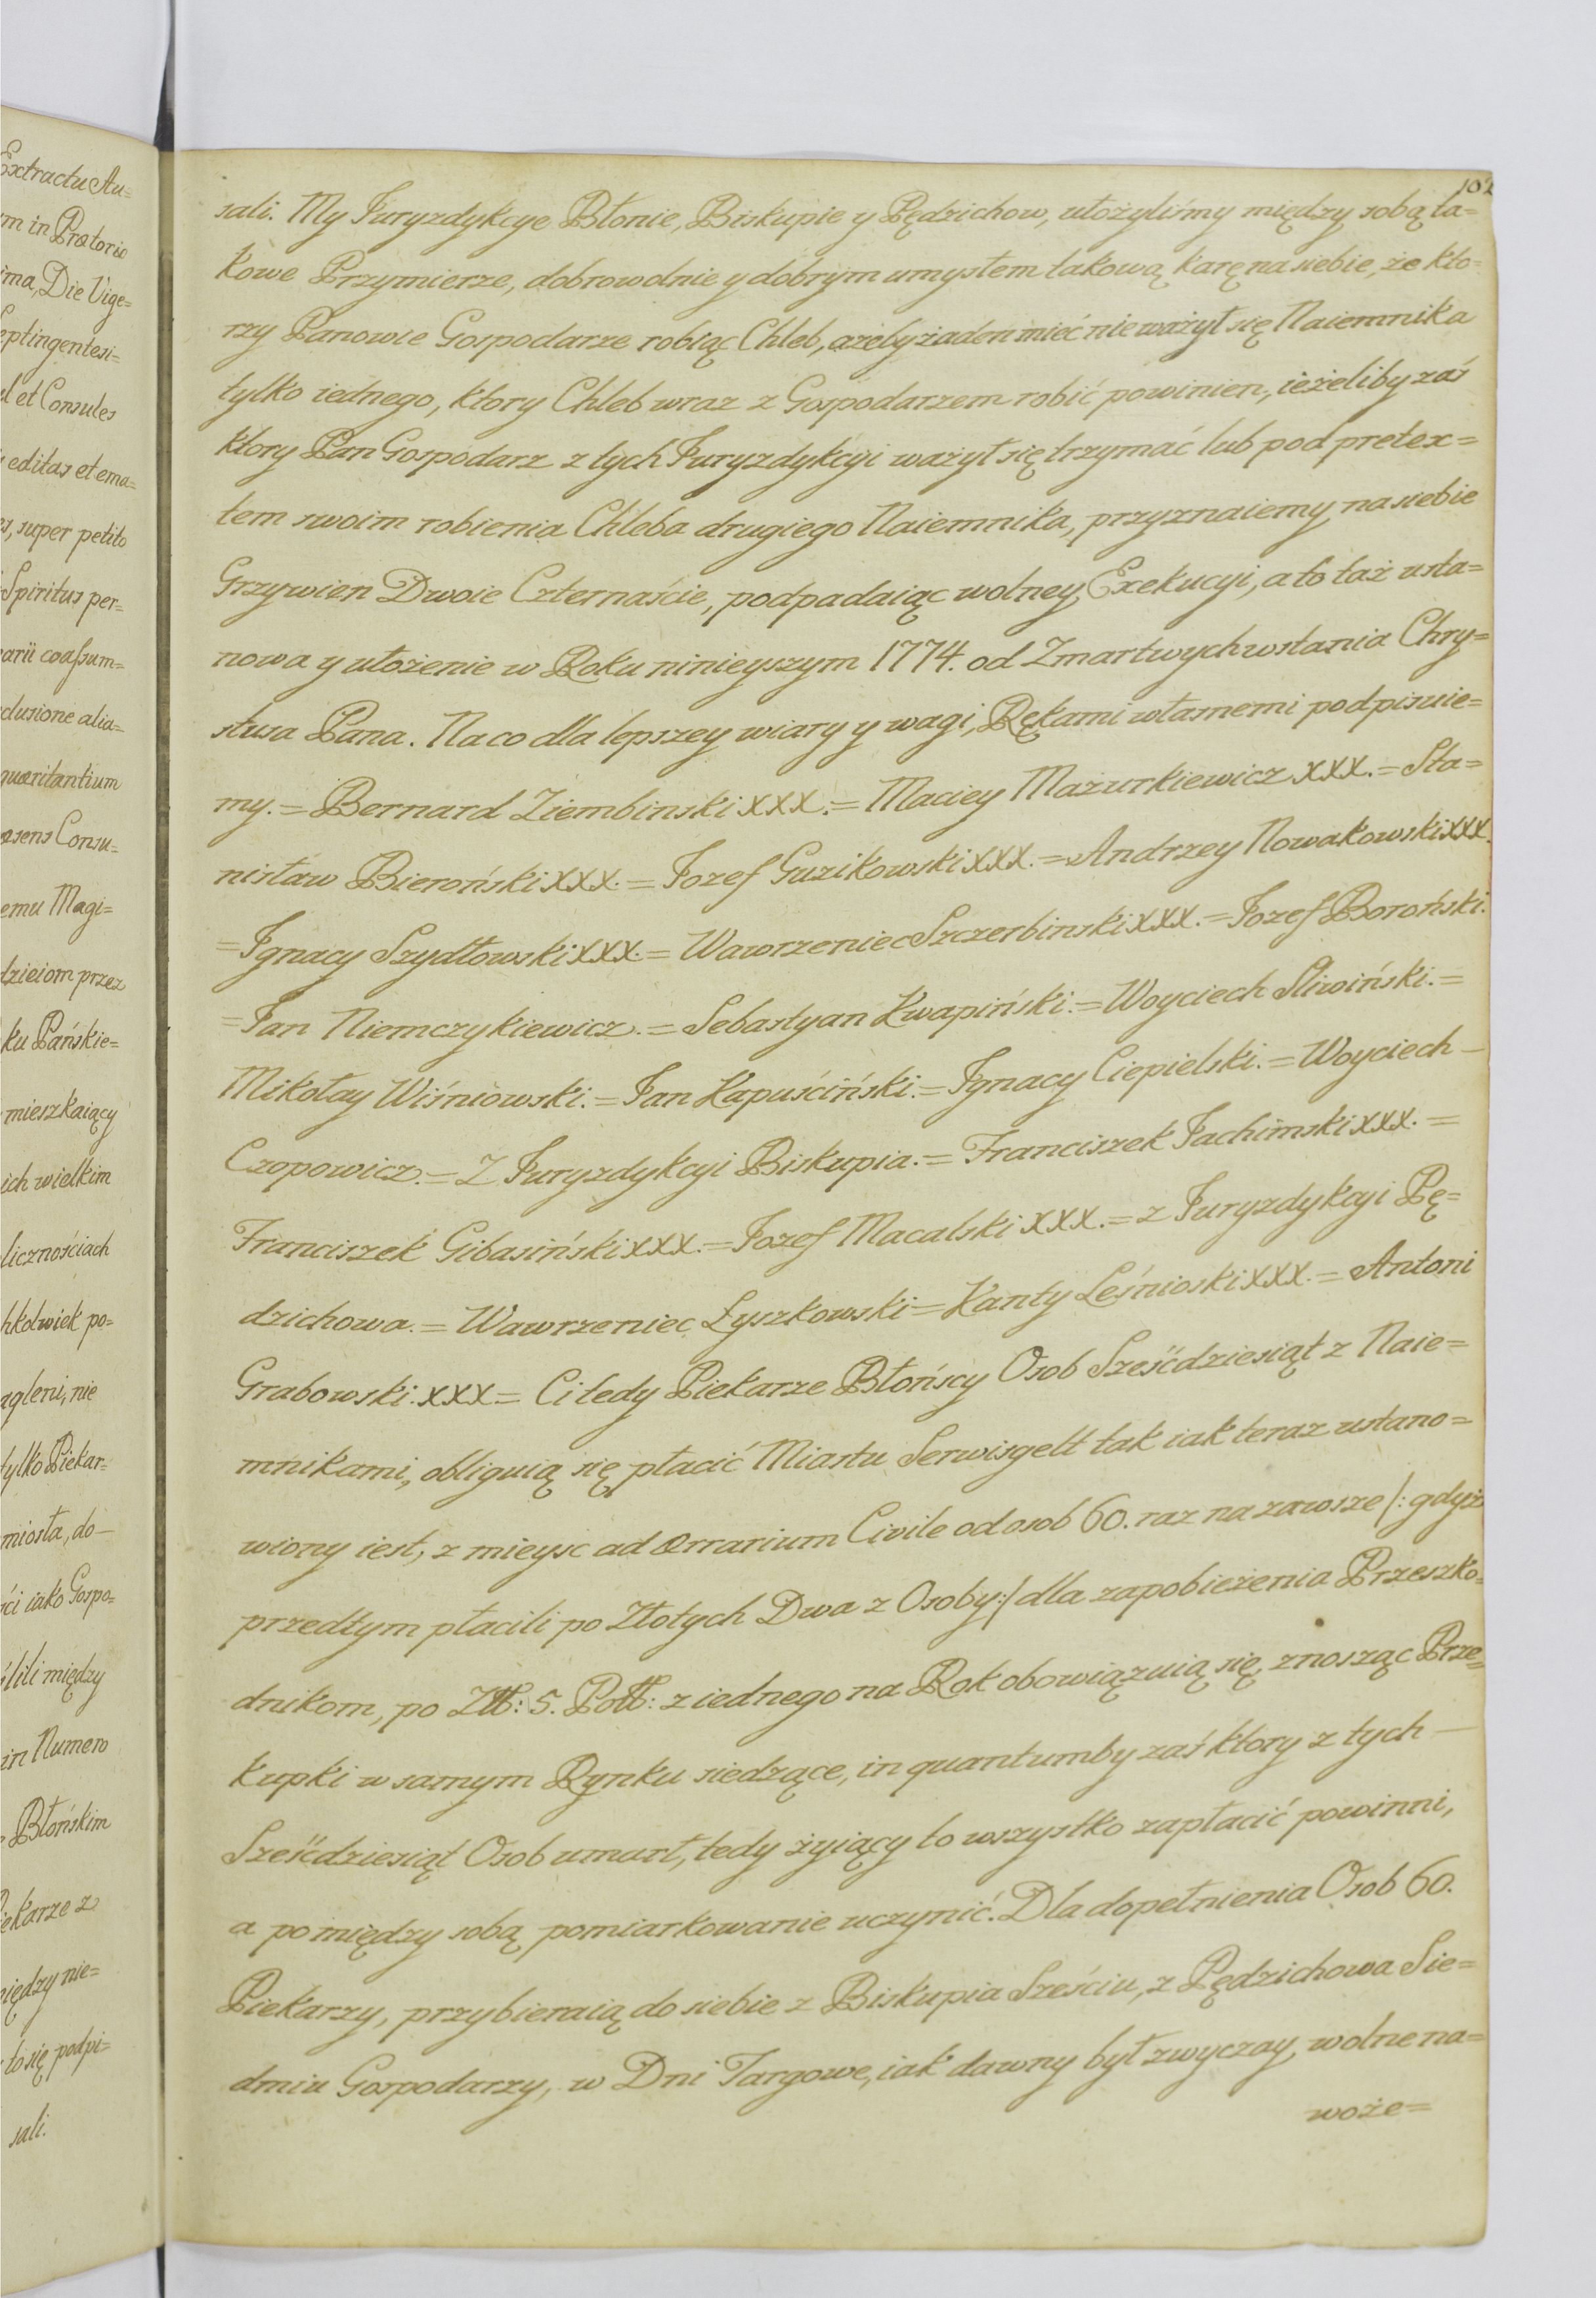 Extractu Au=
m in Prætorio
ima, Die Vige=
eptingentesi=
el et Consules
editas et ema=
es, super petito
Spiritus per=
arii coassum=
clusione alia=
quæritantium
æsens Consu=
emu Magi=
dzieiom przez
ku Pańskie=
mieszkaiący
ich wielkim
licznościach
hkolwiek po=
agleni, nie
tylko Piekar=
miosła, do—
ści iako Gospo=
ślili między
in Numero
Błońskim
iekarze z
między nie=
to się podpi=
sali.
102
sali. My Juryzdykcye Błonie, Biskupie y Pędzichow, ułożyliśmy między sobą ta=
kowe Przymierze, dobrowolnie y dobrym umysłem takową karę na siebie, że kto=
rzy Panowie Gospodarze robiąc Chleb, azeby żaden mieć nie ważył się Naiemnika
tylko iednego, ktory Chleb wraz z Gospodarzem robić powinien, ieżeliby zaś
ktory Pan Gospodarz z tych Juryzdykcyi ważył się trzymać lub pod pretex=
tem swoim robienia Chleba drugiego Naiemnika, przyznaiemy na siebie
Grzywien Dwoie Czternaście, podpadaiąc wolney Exekucyi, a to taż usta=
nowa y ułożenie w Roku ninieyszym 1774. od Zmartwychwstania Chry=
stusa Pana. Na co dla lepszey wiary y wagi, Rękami własnemi podpisuie=
my. = Bernard Ziembinski XXX. = Maciey Mazurkiewicz XXX. = Sta=
nisław Bieroński XXX. = Jozef Guzikowski XXX. = Andrzey Nowakowski XXX.
= Jgnacy Szydłowski XXX. = Wawrzeniec Szczerbinski XXX. = Jozef Boroński.
= Jan Niemczykiewicz. = Sebastyan Kwapiński. = Woyciech Sliwiński. =
Mikołay Wiśniowski. = Jan Kapuściński. = Jgnacy Ciepielski. = Woyciech —
Czopowicz. = Z Juryzdykcyi Biskupia. = Franciszek Jachimski XXX. =
Franciszek Gibasiński XXX. = Jozef Macalski XXX. = z Juryzdykcyi Pę=
dzichowa. = Wawrzeniec Łyszkowski = Kanty Leśnioski XXX. = Antoni
Grabowski. XXX = Ci tedy Piekarze Błońscy Osob Sześćdziesiąt z Naie=
mnikami, obliguią się płacić Miastu Serwisgelt tak iak teraz ustano=
wiony iest, z mieysc ad ærrarium Civile od osob 60. raz na zawsze /: gdyż
przedtym płacili po Złotych Dwa z Osoby :/ dla zapobieżenia Przeszko=
dnikom, po Złł: 5. Polł: z iednego na Rok obowiązuią się, znosząc Prze=
kupki w samym Rynku siedzące, in quantumby zaś ktory z tych —
Sześćdziesiąt Osob umarł, tedy żyiący to wszystko zapłacić powinni,
a pomiędzy sobą pomiarkowanie uczynić. Dla dopełnienia Osob 60.
Piekarzy, przybieraią do siebie z Biskupia Sześciu, z Pędzichowa Sie=
dmiu Gospodarzy, w Dni Targowe, iak dawny był zwyczay, wolne na=
woże=